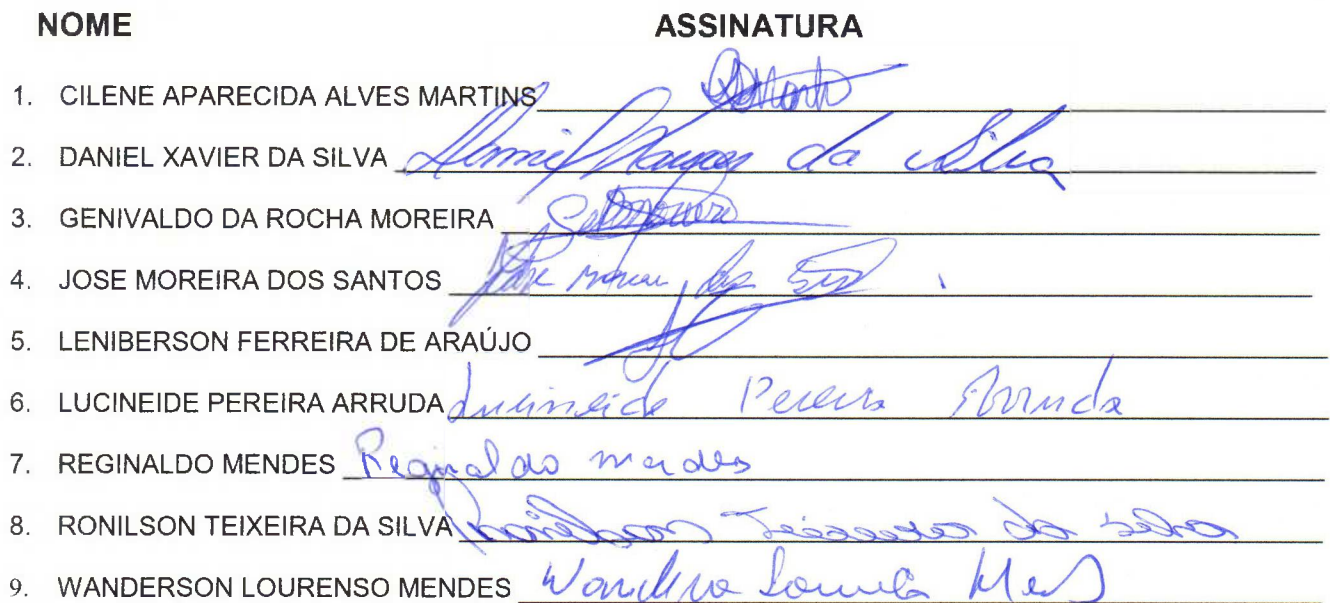 NOME ASSINATURA
1. CILENE APARECIDA ALVES MARTINS
2. DANIEL XAVIER DA SILVA Daniel Xavier da Silva
3. GENIVALDO DA ROCHA MOREIRA
4. JOSE MOREIRA DOS SANTOS
5. LENIBERSON FERREIRA DE ARAÚJO
6. LUCINEIDE PEREIRA ARRUDA Lucineide Pereira Arruda
7. REGINALDO MENDES Reginaldo mendes
8. RONILSON TEIXEIRA DA SILVA Ronilson Teixeira da Silva
9. WANDERSON LOURENSO MENDES